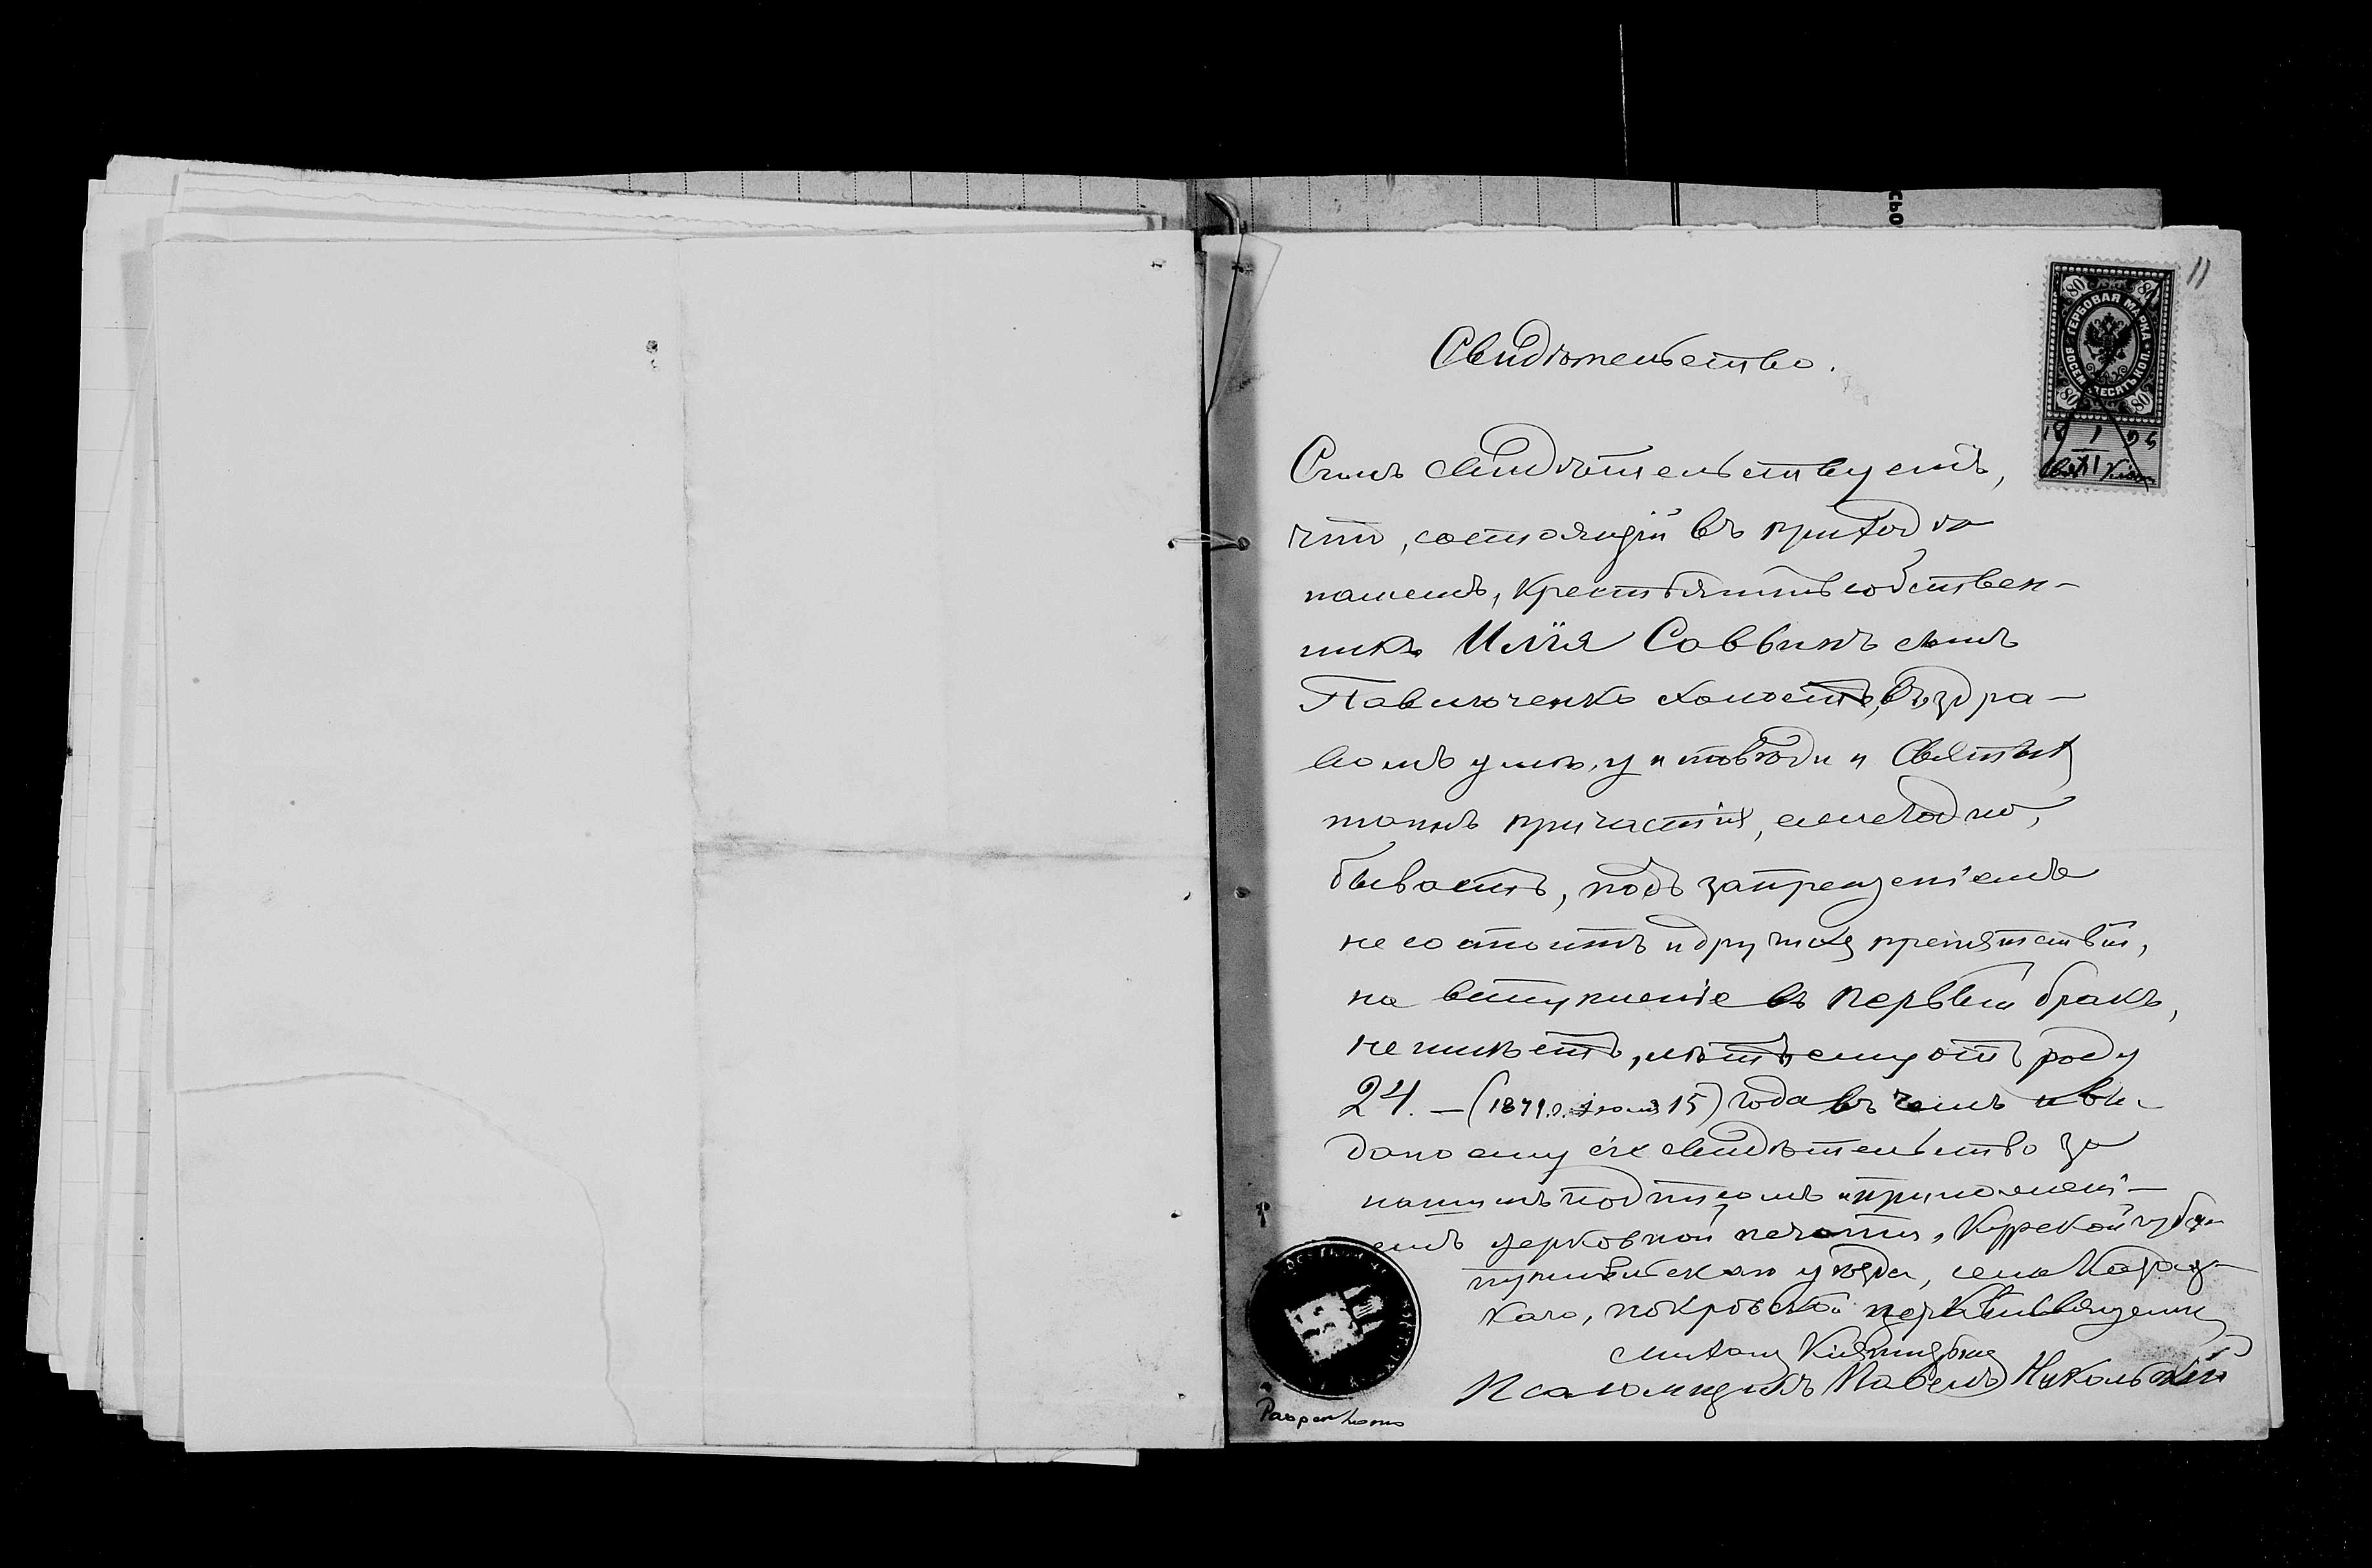 11
80 80
ГЕРБОВАЯ МАРКА
ВОСЕМЬДЕСЯТЪ КОП.
80 80
18 1 95
XI
Свидѣтельство.
Симъ свидѣтельствуемъ,
что, состоящій въ приходѣ
нашемъ, крестьянинъ собствен-
никъ Илія Саввинъ сынъ
Павлюченко холостъ, въ здра-
вомъ умѣ, у исповѣди и Святыхъ
таинъ причастія, ежегодно,
бываетъ, подъ запрещеніемъ
не состоитъ и другихъ препятствій,
на вступленіе въ первый бракъ,
не имѣетъ, лѣтъ ему отъ роду
24. – (1871.г. Іюля 15) года въ чемъ и вы-
дано ему сіе свидѣтельство за
нашимъ подписомъ и приложені-
емъ церковной печати, Курской губерн
путивльскаго уѣзда, села
покровской церкви священникъ
Михаилъ
Псаломщикъ Павелъ Никольскій